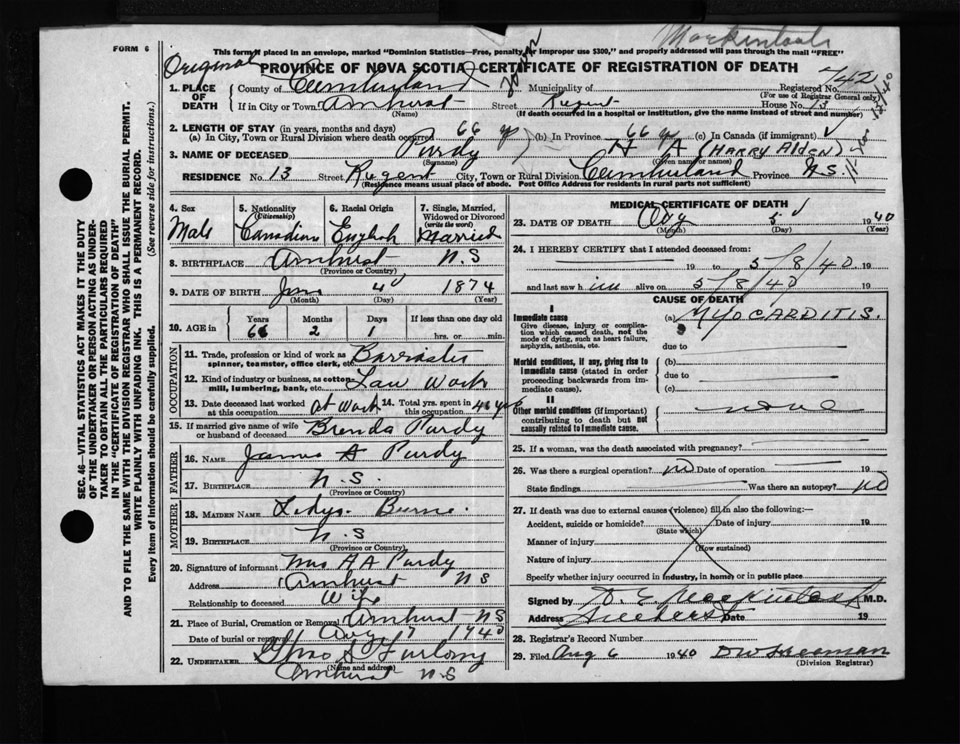 Mackintosh
FORM 6
This form if placed in an envelope, marked "Dominion Statistics—Free, penalty for improper use $300," and properly addressed will pass through the mail "FREE"
Original
PROVINCE OF NOVA SCOTIA—CERTIFICATE OF REGISTRATION OF DEATH
1. PLACE OF DEATH
County of Cumberland Municipality Registered No. 742
(For use of Registrar General only)
If in City or Town Amherst Street Rupert House No. 13
(Name) (If death occurred in a hospital or institution, give the name instead of street and number)
2. LENGTH OF STAY (in years, months and days)
(a) In City, Town or Rural Division where death occurred 66 yr (b) In Province 66 yr (c) In Canada (if immigrant)
3. NAME OF DECEASED Purdy H A (HARRY ALDEN)
(Surname) (Given name or names)
RESIDENCE No. 13 Street Rupert City, Town or Rural Division Cumberland Province N.S.
(Residence means usual place of abode. Post Office Address for residents in rural parts not sufficient)
SEC. 46—VITAL STATISTICS ACT MAKES IT THE DUTY
OF THE UNDERTAKER OR PERSON ACTING AS UNDER-
TAKER TO OBTAIN ALL THE PARTICULARS REQUIRED
IN THE "CERTIFICATE OF REGISTRATION OF DEATH"
AND TO FILE THE SAME WITH THE DIVISION REGISTRAR WHO SHALL ISSUE THE BURIAL PERMIT.
WRITE PLAINLY WITH UNFADING INK. THIS IS A PERMANENT RECORD.
Every item of information should be carefully supplied. (See reverse side for instructions.)
4. Sex Male
5. Nationality (Citizenship) Canadian
6. Racial Origin English
7. Single, Married, Widowed or Divorced (write the word) Married
8. BIRTHPLACE Amherst N.S
(Province or Country)
9. DATE OF BIRTH June 4 1874
(Month) (Day) (Year)
10. AGE in Years Months Days If less than one day old
66 2 1 hrs. or min.
OCCUPATION
11. Trade, profession or kind of work as spinner, teamster, office clerk, etc. Barrister
12. Kind of industry or business, as cotton mill, lumbering, bank, etc. Law Work
13. Date deceased last worked at this occupation At Work 14. Total yrs. spent in this occupation 40 yrs
15. If married give name of wife or husband of deceased Brenda Purdy
FATHER
16. NAME James A Purdy
17. BIRTHPLACE N.S.
(Province or Country)
MOTHER
18. MAIDEN NAME
19. BIRTHPLACE N.S
(Province or Country)
20. Signature of informant Mrs H A Purdy
Address Amherst N S
Relationship to deceased Wife
21. Place of Burial, Cremation or Removal Amherst N S
Date of burial or removal Aug 7 1940
22. UNDERTAKER Furlong
(Name and address)
Amherst N.S
MEDICAL CERTIFICATE OF DEATH
23. DATE OF DEATH Aug 5 1940
(Month) (Day) (Year)
24. I HEREBY CERTIFY that I attended deceased from:
19 to 5/8/40 19
and last saw h im alive on 5/8/40 19
CAUSE OF DEATH
I
Immediate cause
Give disease, injury or complication which caused death, not the mode of dying, such as heart failure, asphyxia, asthenia, etc.
(a) MYOCARDITIS.
due to
Morbid conditions, if any, giving rise to immediate cause (stated in order proceeding backwards from immediate cause).
(b)
due to
(c)
II
Other morbid conditions (if important) contributing to death but not causally related to immediate cause.
none
25. If a woman, was the death associated with pregnancy?
26. Was there a surgical operation? no Date of operation 19
State findings Was there an autopsy? no
27. If death was due to external causes (violence) fill in also the following:—
Accident, suicide or homicide? Date of injury 19
(State which)
Manner of injury
(How sustained)
Nature of injury
Specify whether injury occurred in industry, in home, or in public place
Signed by D. E. Mackintosh M.D.
Address Amherst Date 19
28. Registrar's Record Number
29. Filed Aug 6 1940
(Division Registrar)